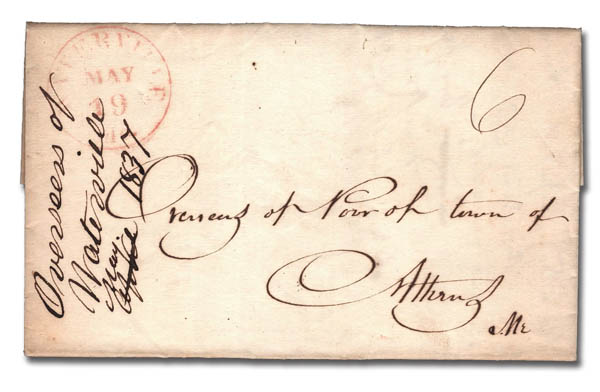 WATERVILLE
MAY
19
6
Overseers of Poor of town of
Athens
Me
Overseers of
Waterville
May 1837